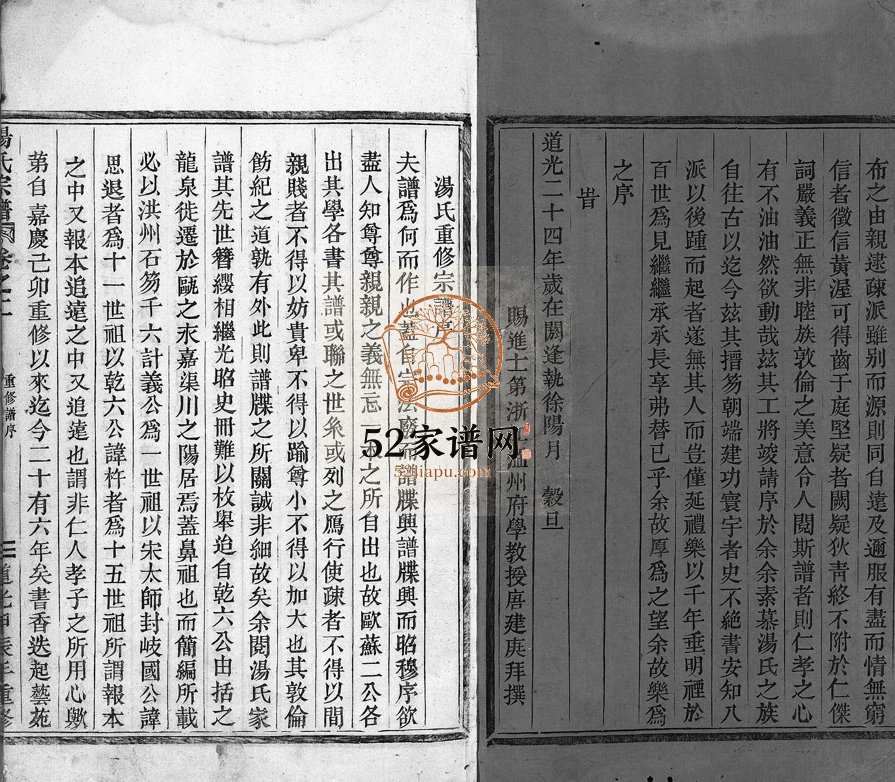 布之由親逮疎派雖別而源則同自遠及邇服有盡而情無窮
信者徵信黄渥可得齒于庭堅疑者闕疑狄青終不附於仁傑
詞嚴義正無非睦族敦倫之美意令人閲斯譜者則仁孝之心
有不油油然欲動哉兹其工將竣請序於余余素慕湯氏之族
自往古以迄今兹其搢笏朝端建功寰宇者史不絶書安知八
派以後踵而起者遂無其人而豈僅延禮樂以千年垂明禋於
百世爲見繼繼承承長享弗替已乎余故厚爲之望余故樂爲
之序
旹
道光二十四年歲在閼逢執徐陽月 穀旦
賜進士第浙江温州府學教授唐建庚拜撰
湯氏重修宗譜序
夫譜爲何而作也蓋自宗法廢而譜牒興譜牒興而昭穆序欲
盡人知尊尊親親之義無忘之所自出也故歐蘇二公各
出其學各書其譜或聯之世系或列之鴈行使疎者不得以間
親賤者不得以妨貴卑不得以踰尊小不得以加大也其敦倫
飭紀之道孰有外此則譜牒之所關誠非細故矣余閲湯氏家
譜其先世簪纓相繼光昭史冊難以枚舉迨自乾六公由括之
龍泉徙遷於甌之永嘉渠川之陽居焉蓋鼻祖也而簡編所載
必以洪州石笏千六計義公爲一世祖以宋太師封岐國公諱
思退者爲十一世祖以乾六公諱杵者爲十五世祖所謂報本
之中又報本追遠之中又追遠也謂非仁人孝子之所用心歟
第自嘉慶己卯重修以來迄今二十有六年矣書香迭起藝苑
湯氏宗譜 卷之一 重修譜序 二 道光甲辰年重修
52家谱网
52jiapu.com